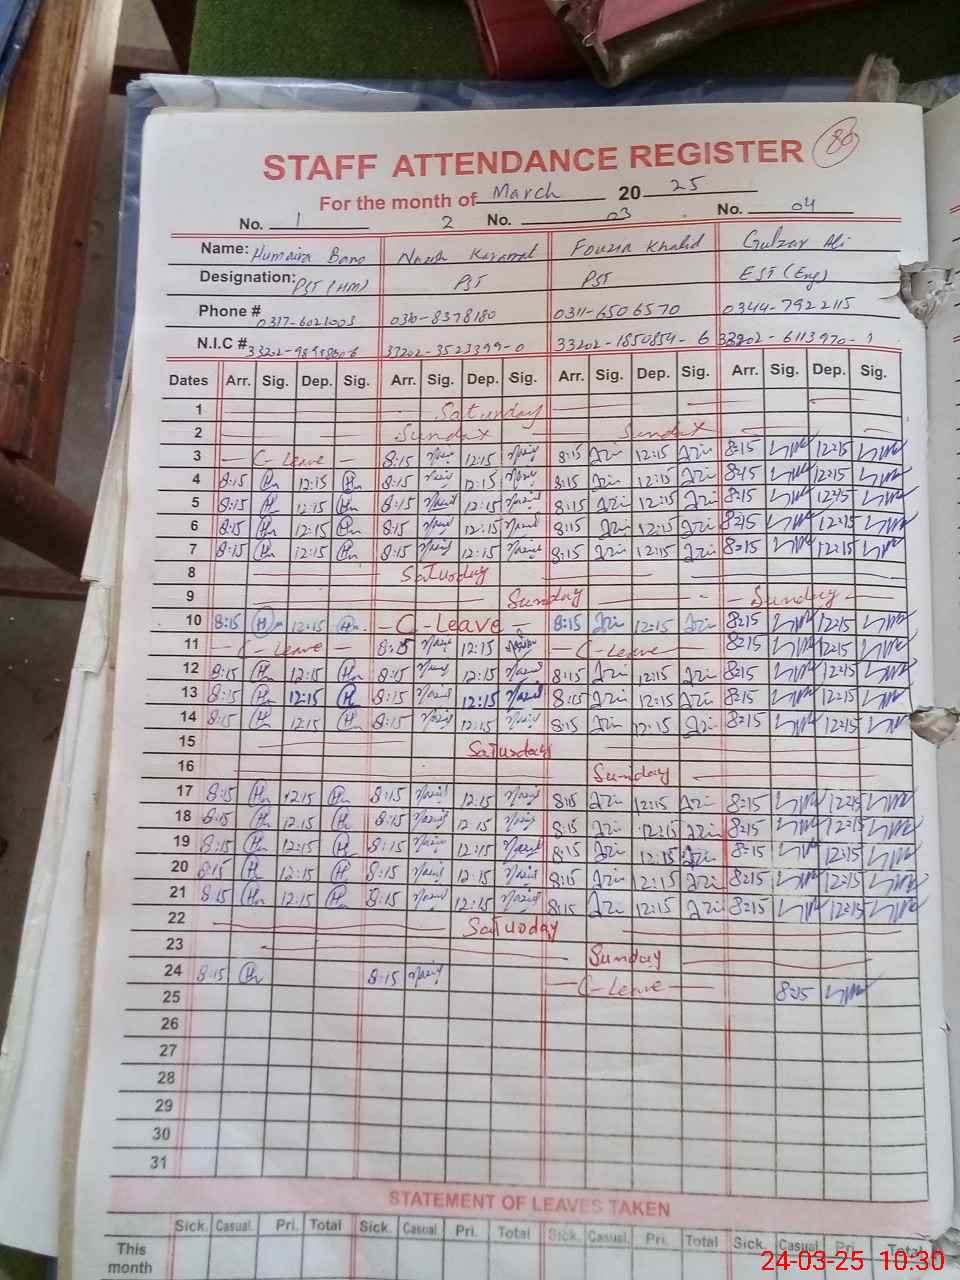 80
STAFF ATTENDANCE REGISTER
For the month of March 20 25
No. 1 2 No. 03 No. 04
Name: Humaira Bano Fouzia Khalid Gulzar Ali
Designation: PST (HM) PST PST EST (Eng)
Phone # 0317-6021003 0310-8378180 0311-6506570 0344-7922115
N.I.C # 33202-3523399-0 33202-1850854-6
Dates Arr. Sig. Dep. Sig. Arr. Sig. Dep. Sig. Arr. Sig. Dep. Sig. Arr. Sig. Dep. Sig.
1 Saturday
2 Sunday Sunday
3 C-Leave 8:15 12:15 8:15 12:15 8:15 12:15
4 8:15 12:15 8:15 12:15 8:15 12:15 8:15 12:15
5 8:15 12:15 8:15 12:15 8:15 12:15 8:15 12:15
6 8:15 12:15 8:15 12:15 8:15 12:15 8:15 12:15
7 8:15 12:15 8:15 12:15 8:15 12:15 8:15 12:15
8 Saturday
9 Sunday Sunday
10 8:15 12:15 C-Leave 8:15 12:15 8:15 12:15
11 C-Leave 8:15 12:15 C-Leave 8:15 12:15
12 8:15 12:15 8:15 12:15 8:15 12:15 8:15 12:15
13 8:15 12:15 8:15 12:15 8:15 12:15 8:15 12:15
14 8:15 12:15 8:15 12:15 8:15 12:15 8:15 12:15
15 Saturday
16 Sunday
17 8:15 12:15 8:15 12:15 8:15 12:15 8:15 12:15
18 8:15 12:15 8:15 12:15 8:15 12:15 8:15 12:15
19 8:15 12:15 8:15 12:15 8:15 12:15 8:15 12:15
20 8:15 12:15 8:15 12:15 8:15 12:15 8:15 12:15
21 8:15 12:15 8:15 12:15 8:15 12:15 8:15 12:15
22 Saturday
23 Sunday
24 8:15 8:15 C-Leave 8:15
25
26
27
28
29
30
31
STATEMENT OF LEAVES TAKEN
Sick. Casual. Pri. Total Sick. Casual. Pri. Total Sick. Casual. Pri. Total Sick. Casual. Pri. Total
This month
24-03-25 10:30